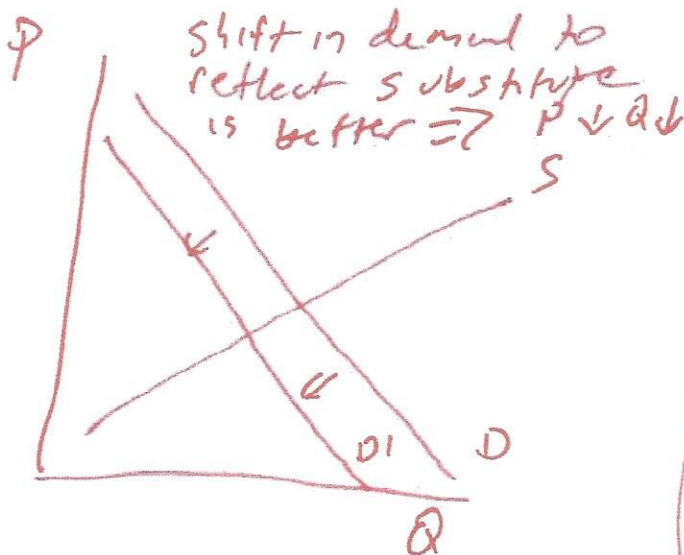 P
shift in demand to
reflect substitute
is better => P ↓ Q ↓
S
D1 D
Q